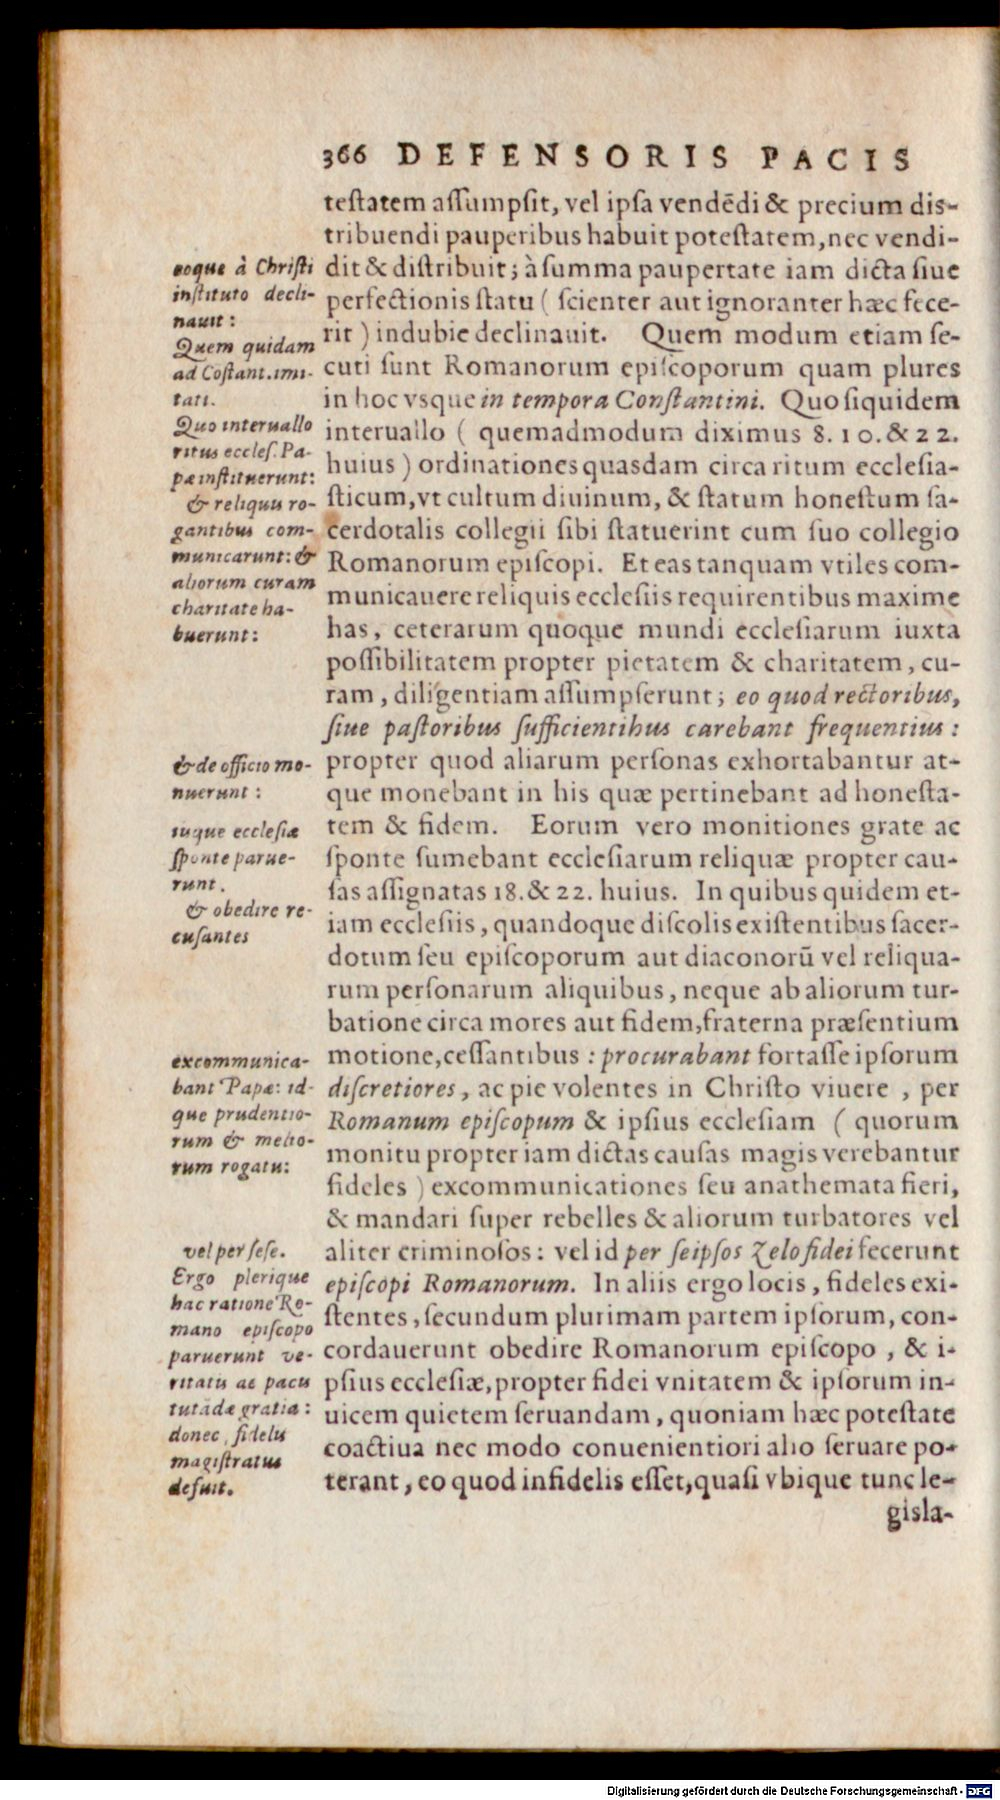 366 DEFENSORIS PACIS
teſtatem aſſumpſit, vel ipſa vendēdi & precium dis-
tribuendi pauperibus habuit poteſtatem, nec vendi-
dit & diſtribuit; à ſumma paupertate iam dicta ſiue
perfectionis ſtatu ( ſcienter aut ignoranter hæc fece-
rit ) indubie declinauit. Quem modum etiam ſe-
cuti ſunt Romanorum epiſcoporum quam plures
in hoc vsque in tempora Conſtantini. Quo ſiquidem
interuallo ( quemadmodum diximus 8. 10. & 22.
huius ) ordinationes quasdam circa ritum eccleſia-
ſticum, vt cultum diuinum, & ſtatum honeſtum ſa-
cerdotalis collegii ſibi ſtatuerint cum ſuo collegio
Romanorum epiſcopi. Et eas tanquam vtiles com-
municauere reliquis eccleſiis requirentibus maxime
has, ceterarum quoque mundi eccleſiarum iuxta
poſſibilitatem propter pietatem & charitatem, cu-
ram, diligentiam aſſumpſerunt; eo quod rectoribus,
ſiue paſtoribus ſufficientibus carebant frequentius :
propter quod aliarum perſonas exhortabantur at-
que monebant in his quæ pertinebant ad honeſta-
tem & fidem. Eorum vero monitiones grate ac
ſponte ſumebant eccleſiarum reliquæ propter cau-
ſas aſſignatas 18. & 22. huius. In quibus quidem et-
iam eccleſiis, quandoque diſcolis exiſtentibus ſacer-
dotum ſeu epiſcoporum aut diaconorū vel reliqua-
rum perſonarum aliquibus, neque ab aliorum tur-
batione circa mores aut fidem, fraterna præſentium
motione, ceſſantibus : procurabant fortaſſe ipſorum
diſcretiores, ac pie volentes in Chriſto viuere , per
Romanum epiſcopum & ipſius eccleſiam ( quorum
monitu propter iam dictas cauſas magis verebantur
fideles ) excommunicationes ſeu anathemata fieri,
& mandari ſuper rebelles & aliorum turbatores vel
aliter criminoſos : vel id per ſeipſos Zelo fidei fecerunt
epiſcopi Romanorum. In aliis ergo locis, fideles exi-
ſtentes, ſecundum plurimam partem ipſorum, con-
cordauerunt obedire Romanorum epiſcopo , & i-
pſius eccleſiæ, propter fidei vnitatem & ipſorum in-
uicem quietem ſeruandam, quoniam hæc poteſtate
coactiua nec modo conuenientiori alio ſeruare po-
terant, eo quod infidelis eſſet, quaſi vbique tunc le-
gisla-
eoque à Chriſti
inſtituto decli-
nauit :
Quem quidam
ad Coſtant. imi-
tati.
Quo interuallo
ritus eccleſ. Pa-
pæ inſtituerunt :
& reliquis ro-
gantibus com-
municarunt : &
aliorum curam
charitate ha-
buerunt :
& de officio mo-
nuerunt :
iuque eccleſiæ
ſponte parue-
runt.
& obedire re-
cuſantes
excommunica-
bant Papæ : id-
que prudentio-
rum & melio-
rum rogatu :
vel per ſeſe.
Ergo plerique
hac ratione Ro-
mano epiſcopo
paruerunt ve-
ritatis ac pacis
tutādæ gratia :
donec fidelis
magiſtratus
defuit.
Digitalisierung gefördert durch die Deutsche Forschungsgemeinschaft - DFG